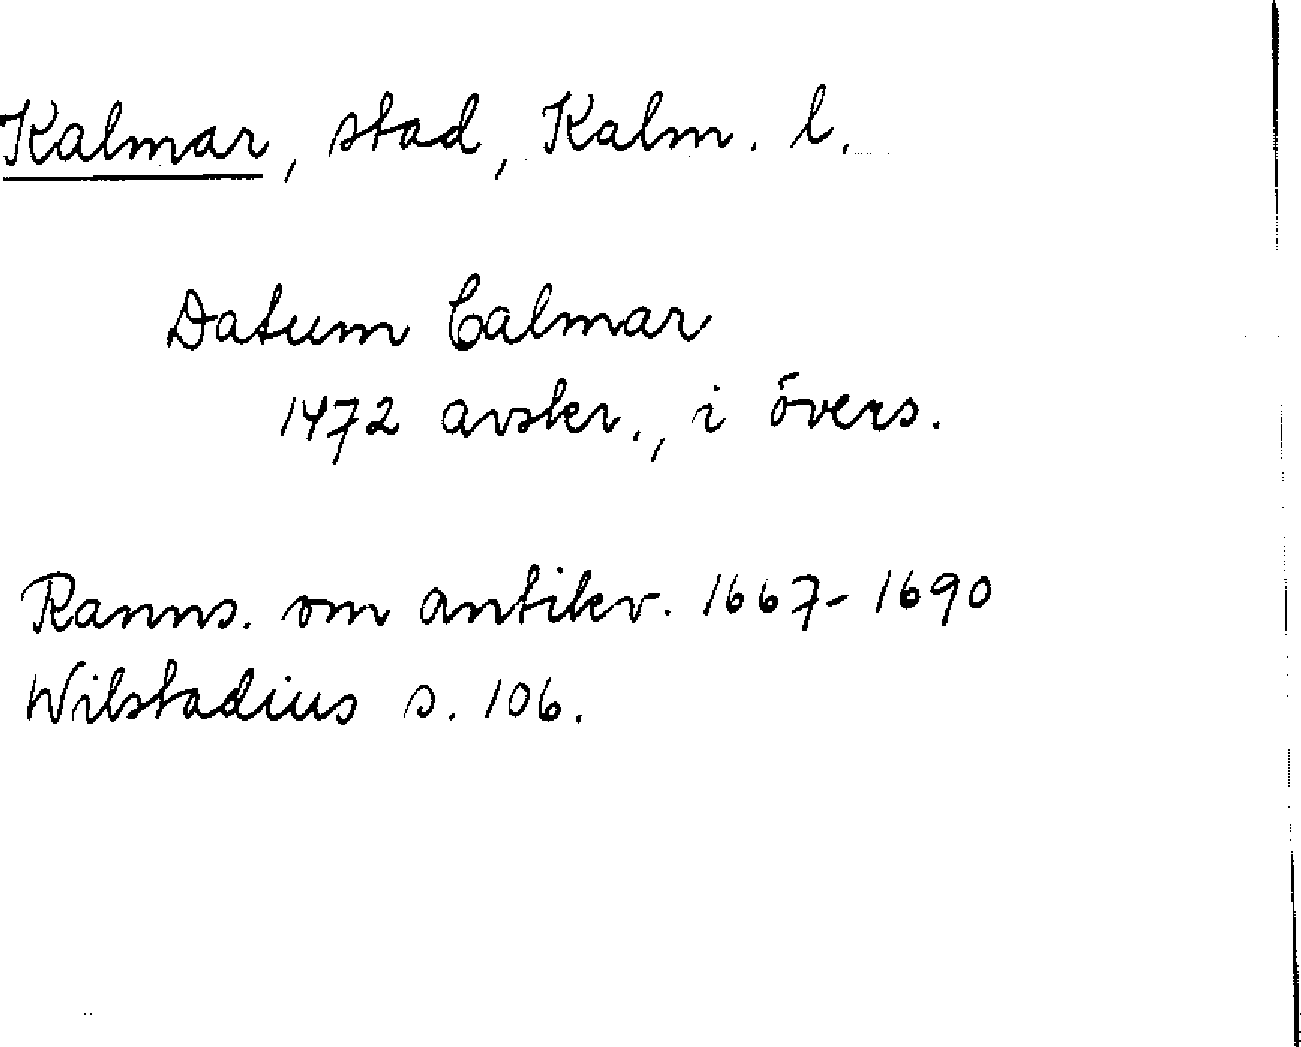 Kalmar, stad, Kalm. l.
Datum Calmar
1472 avskr., i övers.
Ranns. om antikv. 1667-1690
Wilstadius s. 106.